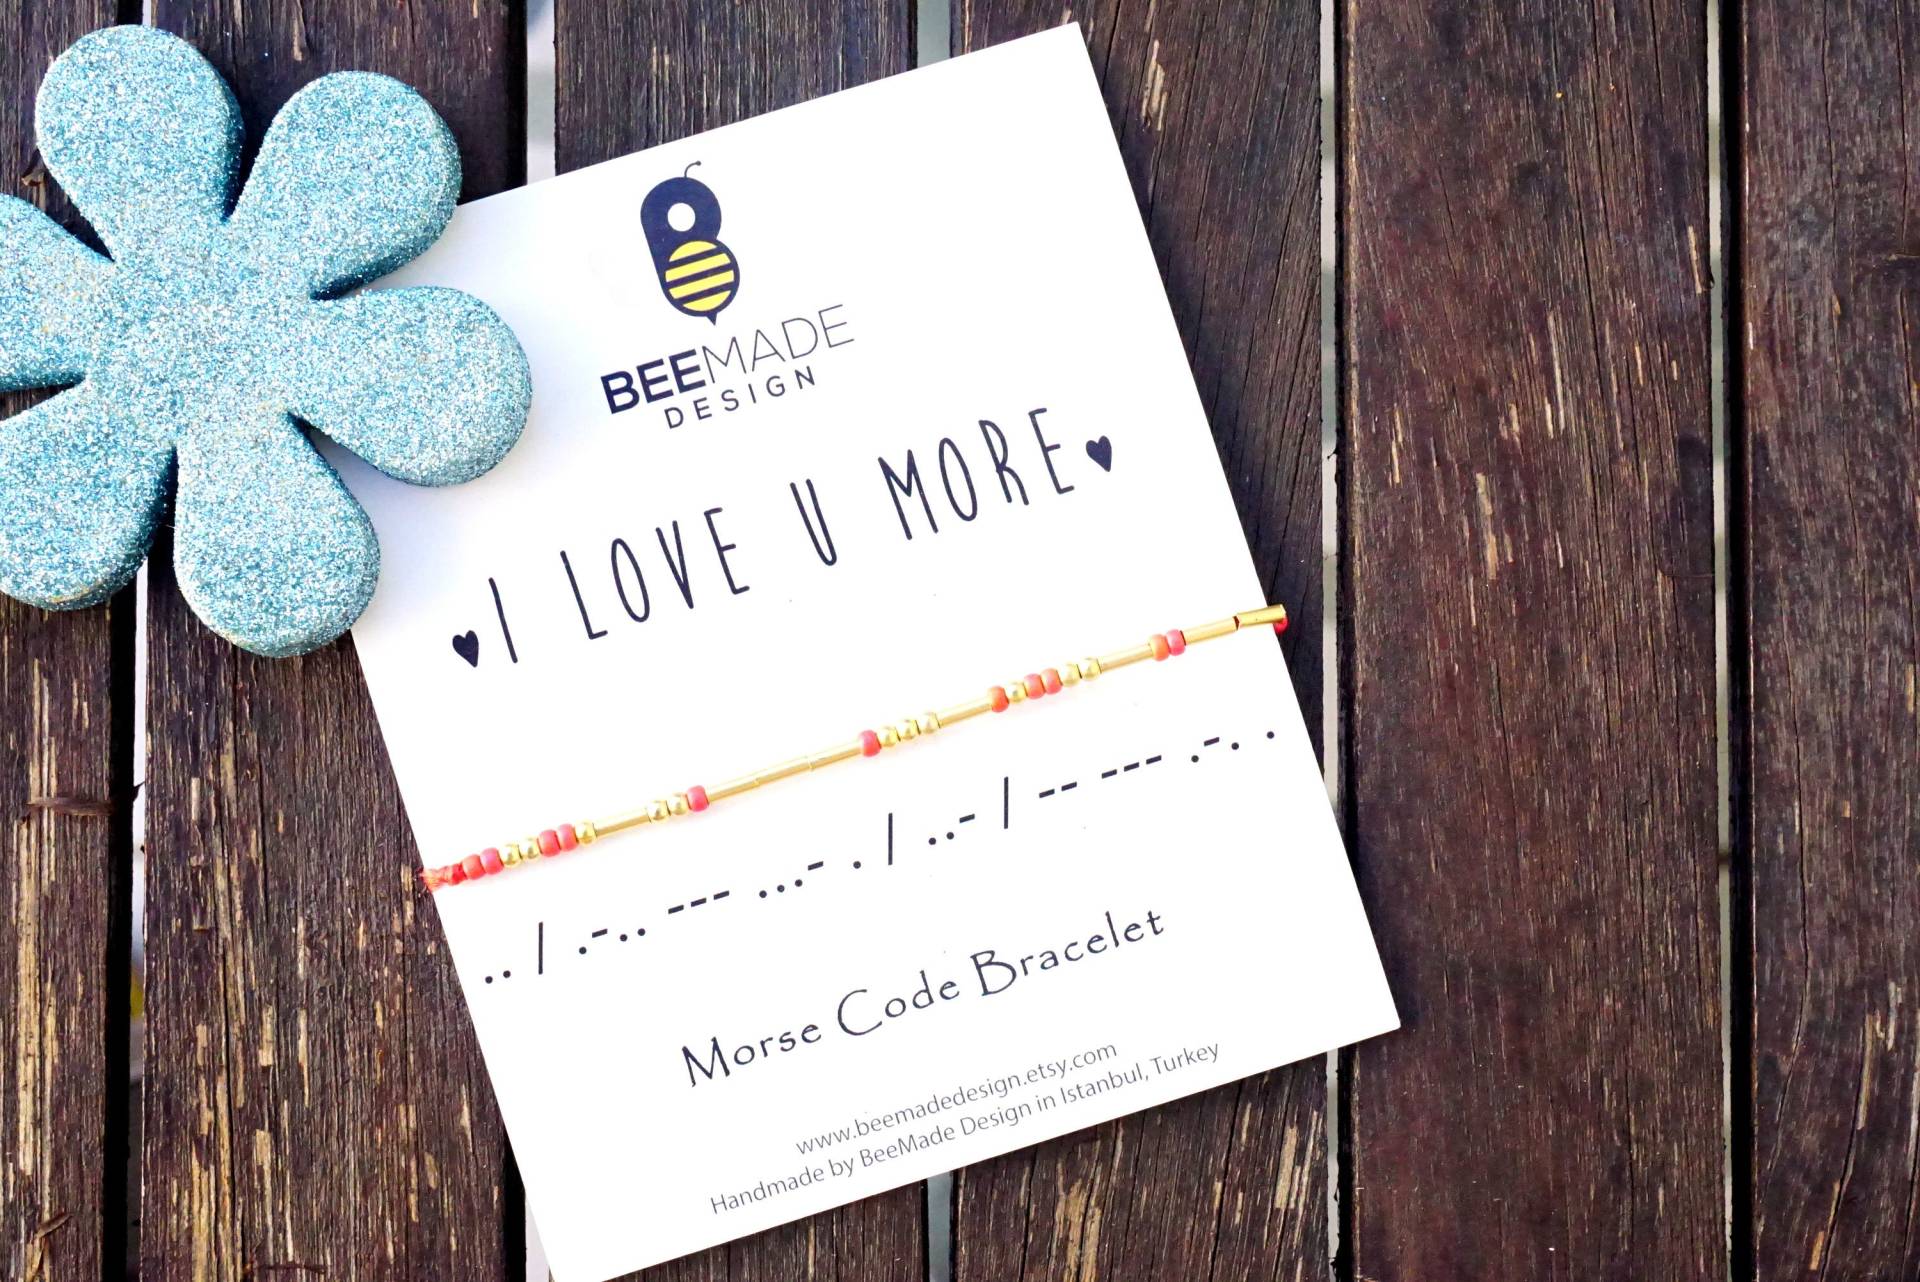 BEEMADE
DESIGN
I LOVE U MORE
.. / .-.. --- ...- . / ..- / -- --- .-. .
Morse Code Bracelet
www.beemadedesign.etsy.com
Handmade by BeeMade Design in Istanbul, Turkey